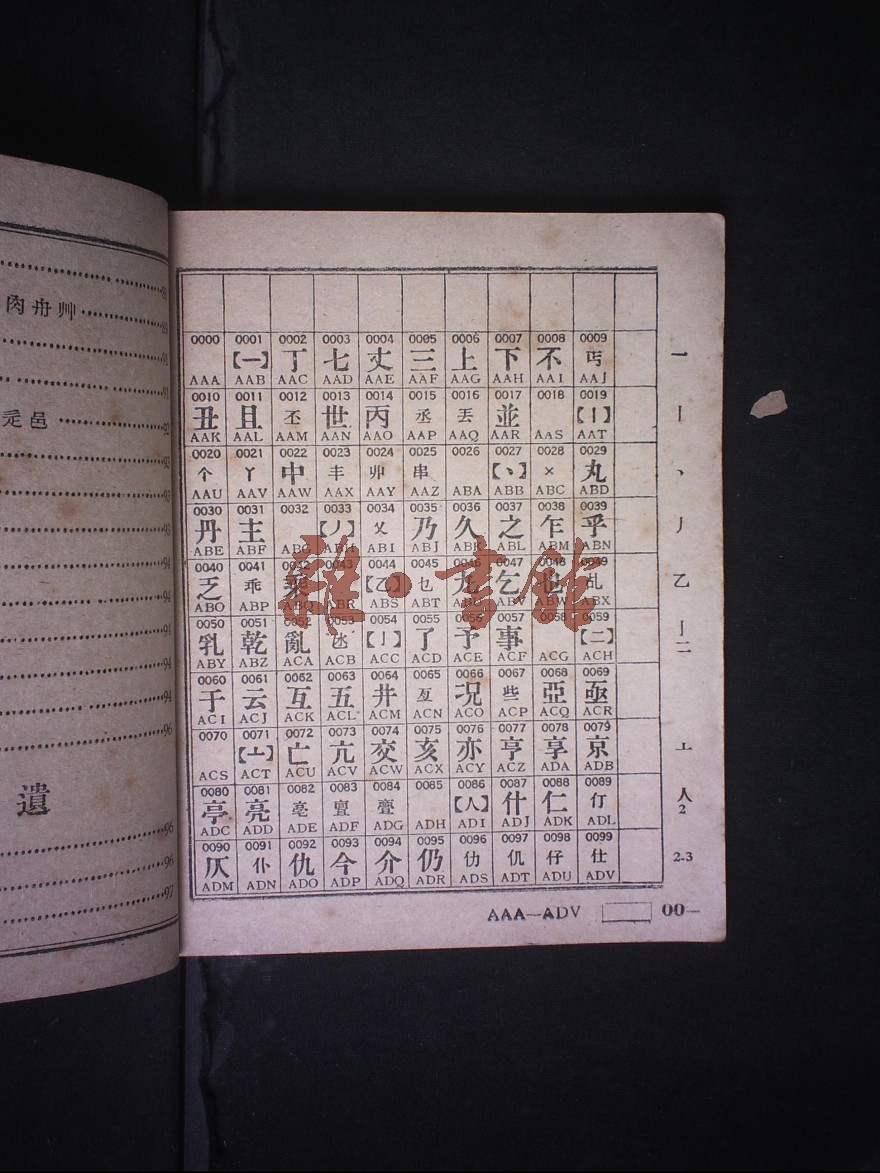 肉舟艸
辵邑
遺
0000 0001 0002 0003 0004 0005 0006 0007 0008 0009
【一】 丁 七 丈 三 上 下 不 丐 一
AAA AAB AAC AAD AAE AAF AAG AAH AAI AAJ
0010 0011 0012 0013 0014 0015 0016 0017 0018 0019
丑 且 丕 世 丙 丞 丟 並 【丨】 丨
AAK AAL AAM AAN AAO AAP AAQ AAR AaS AAT
0020 0021 0022 0023 0024 0025 0026 0027 0028 0029
个 丫 中 丰 丱 串 【丶】 × 丸 丶
AAU AAV AAW AAX AAY AAZ ABA ABB ABC ABD
0030 0031 0032 0033 0034 0035 0036 0037 0038 0039
丹 主 【丿】 乂 乃 久 之 乍 乎 丿
ABE ABF ABG ABH ABI ABJ ABK ABL ABM ABN
0040 0041 0042 0043 0044 0045 0046 0047 0048 0049
乏 乖 乘 【乙】 乜 九 乞 也 乩 乙
ABO ABP ABQ ABR ABS ABT ABU ABV ABW ABX
0050 0051 0052 0053 0054 0055 0056 0057 0058 0059
乳 乾 亂 氹 【亅】 了 予 事 【二】 亅二
ABY ABZ ACA ACB ACC ACD ACE ACF ACG ACH
0060 0061 0062 0063 0064 0065 0066 0067 0068 0069
于 云 互 五 井 亙 况 些 亞 亟
ACI ACJ ACK ACL ACM ACN ACO ACP ACQ ACR
0070 0071 0072 0073 0074 0075 0076 0077 0078 0079
【亠】 亡 亢 交 亥 亦 亨 享 京 亠
ACS ACT ACU ACV ACW ACX ACY ACZ ADA ADB
0080 0081 0082 0083 0084 0085 0086 0087 0088 0089
亭 亮 亳 亶 亹 【人】 什 仁 仃 人
ADC ADD ADE ADF ADG ADH ADI ADJ ADK ADL 2
0090 0091 0092 0093 0094 0095 0096 0097 0098 0099
仄 仆 仇 今 介 仍 仂 仉 仔 仕 2-3
ADM ADN ADO ADP ADQ ADR ADS ADT ADU ADV
AAA—ADV 00—
雜·書館